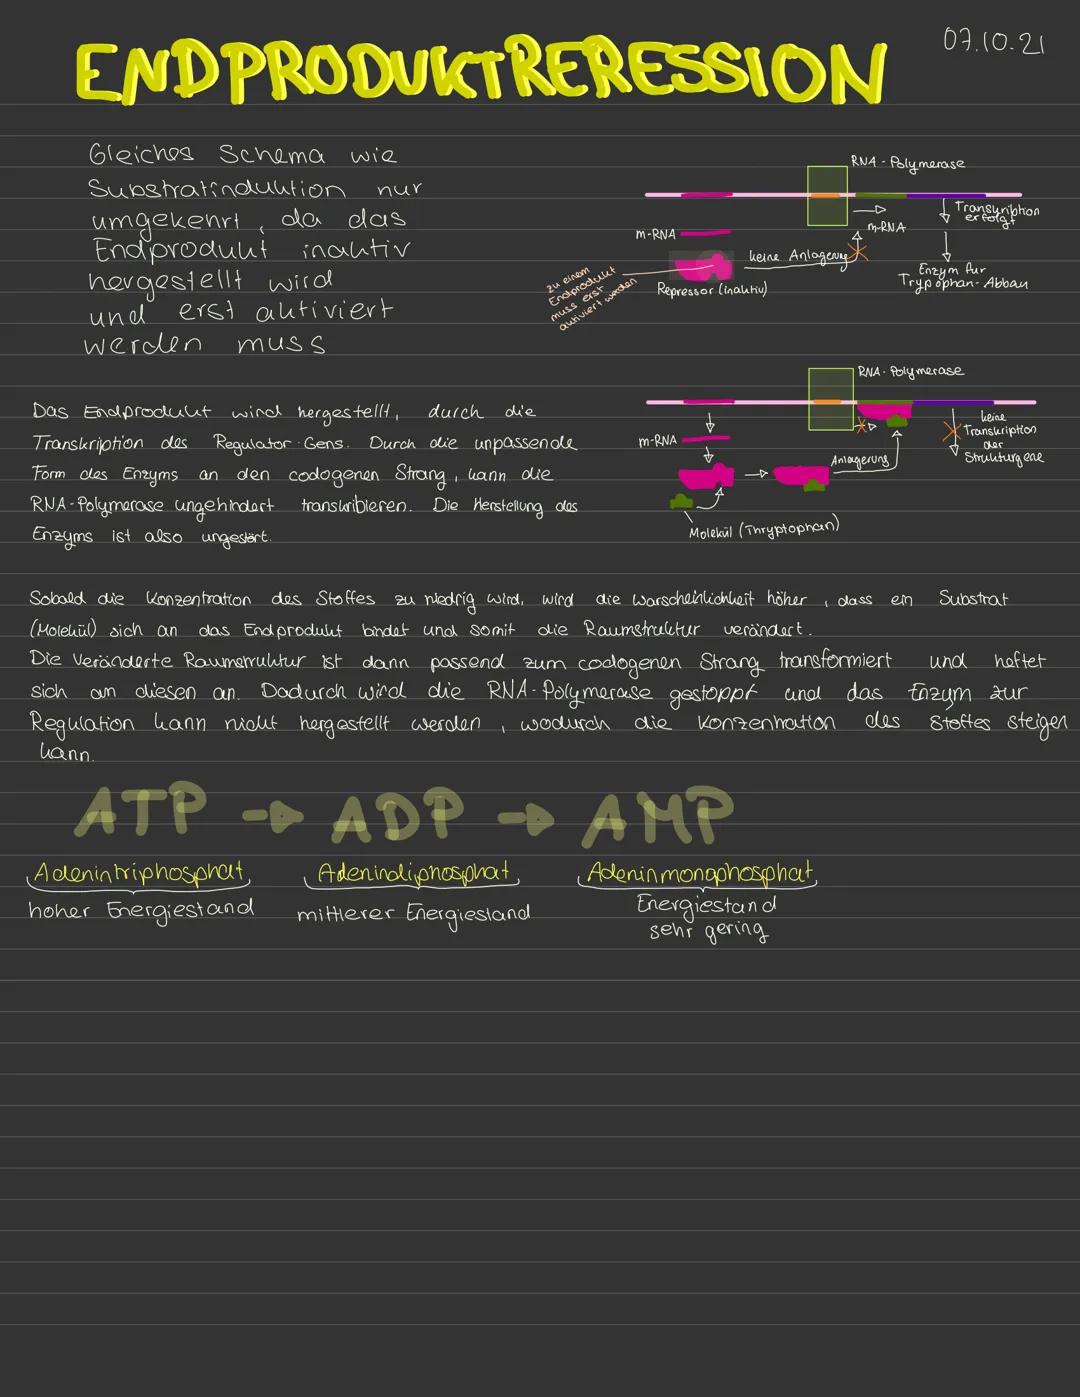 07.10.21
ENDPRODUKTRERESSION
Gleiches Schema wie
Substratinduktion nur
umgekehrt, da das
Endprodukt inaktiv
hergestellt wird
und erst aktiviert
werden muss
RNA-Polymerase
Transkription
erfolgt
m-RNA
m-RNA
keine Anlagerung
Enzym für
Trypophan-Abbau
Repressor (inaktiv)
zu einem
Endprodukt
muss erst
aktiviert werden
RNA-Polymerase
m-RNA
keine
Transkription
der
Strukturgene
Anlagerung
Molekül (Thryptophan)
Das Endprodukt wird hergestellt, durch die
Transkription des Regulator-Gens. Durch die unpassende
Form des Enzyms an den codogenen Strang, kann die
RNA-Polymerase ungehindert transkribieren. Die Herstellung des
Enzyms ist also ungestört.
Sobald die Konzentration des Stoffes zu niedrig wird, wird die Warscheinlichkeit höher, dass ein Substrat
(Molekül) sich an das Endprodukt bindet und somit die Raumstruktur verändert.
Die Veränderte Raumstruktur ist dann passend zum codogenen Strang transformiert und heftet
sich an diesen an. Dadurch wird die RNA-Polymerase gestoppt und das Enzym zur
Regulation kann nicht hergestellt werden, wodurch die Konzentration des Stoffes steigen
kann.
ATP → ADP → AMP
Adenintriphosphat Adenindiphosphat Adeninmonophosphat
hoher Energiestand mittlerer Energiestand Energiestand
sehr gering